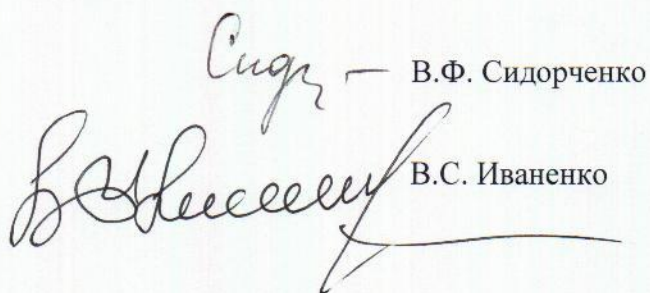 Сидр — В.Ф. Сидорченко
В.С. Иваненко